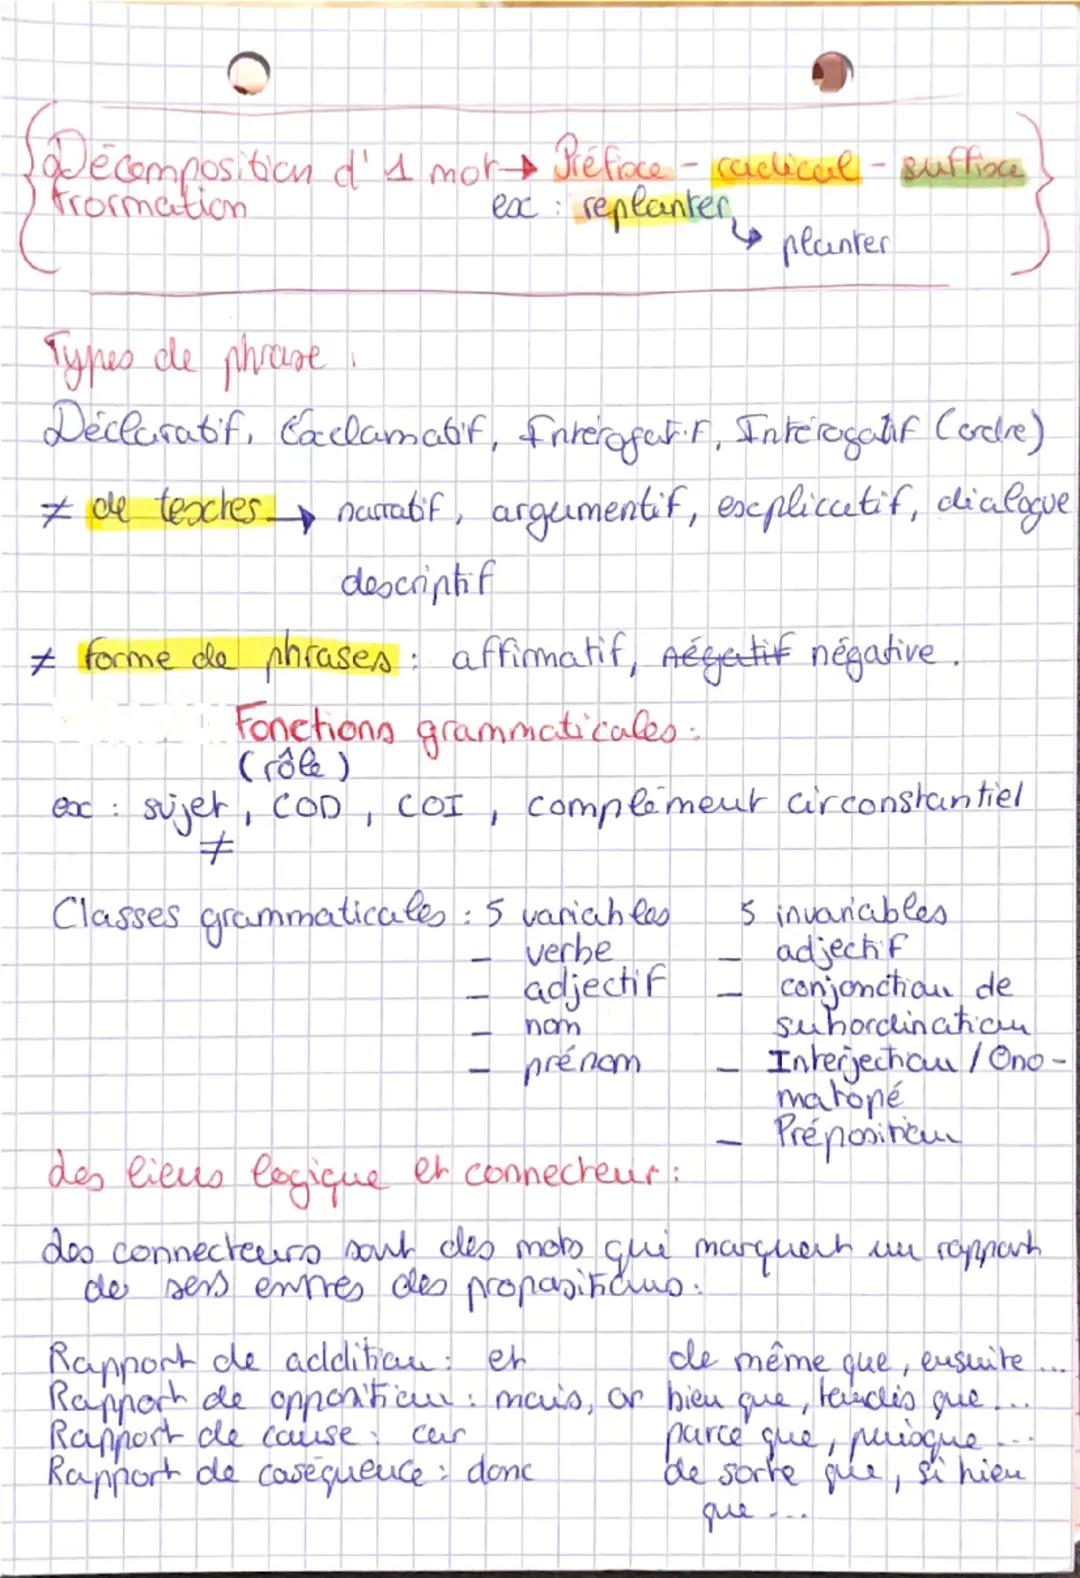 Décomposition d'1 mot → Préfixe - radical - suffixe
formation
ex : replanter
↳ planter
Types de phrase :
Déclaratif, Exclamatif, Intérogatif, Intérogatif (ordre)
≠ de textes → narratif, argumentif, explicatif, dialogue
descriptif
≠ forme de phrases : affirmatif, négatif négative.
Fonctions grammaticales :
(rôle)
ex : sujet, COD, COI, complément circonstantiel
≠
Classes grammaticales : 5 variables 5 invariables
- verbe - adjectif
- adjectif - conjonction de
- nom subordination
- prénom - Interjection / Ono-
matopé
- Préposition
des liens logique et connecteur :
des connecteurs sont des mots qui marquent un rapport
de sens entres des propositions.
Rapport de addition : et de même que, ensuite ...
Rapport de opposition : mais, or bien que, tandis que ...
Rapport de cause : car parce que, puisque ...
Rapport de caséquence : donc de sorte que, si bien
que ...